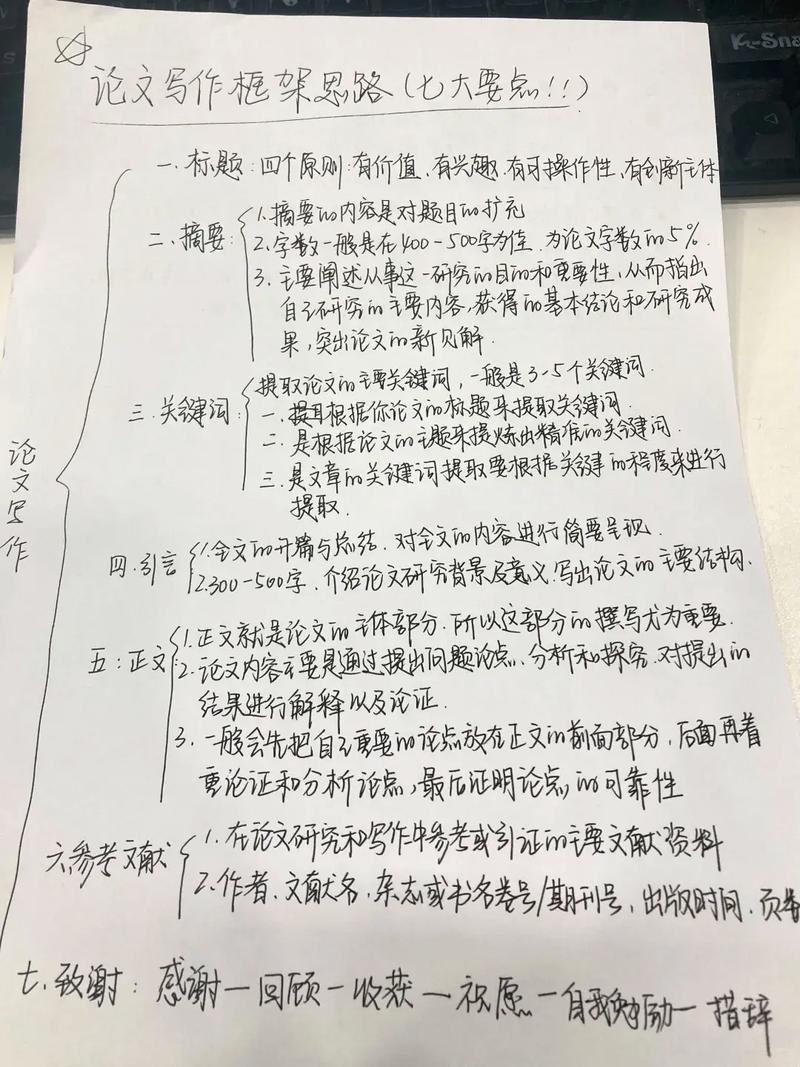 K-Sna
论文写作框架思路(七大要点!!)
论文写作
一.标题:四个原则:有价值、有兴趣、有可操作性、有创新主体
二.摘要:
1.摘要的内容是对题目的扩充
2.字数一般是在400-500字为佳.为论文字数的5%.
3.主要阐述从事这一研究的目的和重要性,从而指出
自己研究的主要内容,获得的基本结论和研究成
果,突出论文的新见解.
三.关键词:
提取论文的主要关键词,一般是3-5个关键词.
一.提取根据你论文的标题来提取关键词.
二.是根据论文的主题来提炼出精准的关键词.
三.是文章的关键词提取要根据关键的程度来进行
提取.
四.引言
1.全文的开篇与总结.对全文的内容进行简要呈现.
2.300-500字.介绍论文研究背景及意义.写出论文的主要结构.
五:正文
1.正文就是论文的主体部分.所以这部分的撰写尤为重要.
2.论文内容主要是通过提出问题论点、分析和探究.对提出的
结果进行解释以及论证.
3.一般会先把自己重要的论点放在正文的前面部分,后面再着
重论证和分析论点,最后证明论点的可靠性
六.参考文献
1.在论文研究和写作中参考或引证的主要文献资料
2.作者、文献名、杂志或书名卷号/期刊号、出版时间、页
七.致谢:感谢—回顾—收获—祝愿—自我勉励—措辞